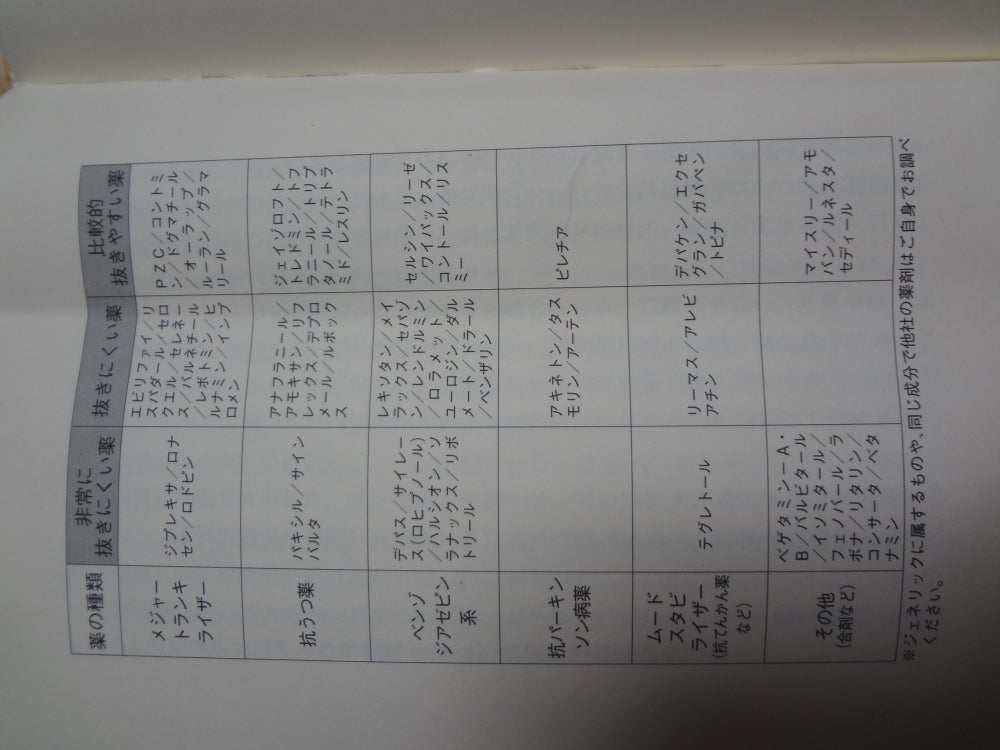 薬の種類
非常に
抜きにくい薬
抜きにくい薬
比較的
抜きやすい薬
メジャー
トランキ
ライザー
ジプレキサ／ロナ
セン／ロドピン
エビリファイ／リ
スパダール／セロ
クエル／セレネー
ス／バルネチール
／レボトミン／ヒ
ルナミン／インプ
ロメン
PZC／コントミ
ン／ドグマチール
／オーラップ／
ルーラン／グラマ
リール
抗うつ薬
パキシル／サイン
バルタ
アナフラニール／
アモキサン／リフ
レックス／デプロ
メール／ルボック
ス
ジェイゾロフト／
トレドミン／トフ
ラニール／トリプ
タノール／テトラ
ミド／レスリン
ベンゾ
ジアゼピン
系
デパス／サイレー
ス（ロヒプノール）
／ハルシオン／ソ
ラナックス／リボ
トリール
レキソタン／メイ
ラックス／セパゾ
ン／レンドルミン
／ロラメット／
ユーロジン／ダル
メート／ドラール
／ベンザリン
セルシン／リーゼ
／ワイパックス／
コントール／リス
ミー
抗パーキン
ソン病薬
アキネトン／タス
モリン／アーテン
ピレチア
ムード
スタビ
ライザー
（抗てんかん薬
など）
テグレトール
リーマス／アレビ
アチン
デパケン／エクセ
グラン／ガバペン
／トピナ
その他
（合剤など）
ベゲタミンーA・
B／バルビタール
／イソミタール／
フェノバール／ラ
ボナ／リタリン／
コンサータ／ベタ
ナミン
マイスリー／アモ
バン／ルネスタ／
セディール
※ジェネリックに属するものや、同じ成分で他社の薬剤はご自身でお調べ
ください。